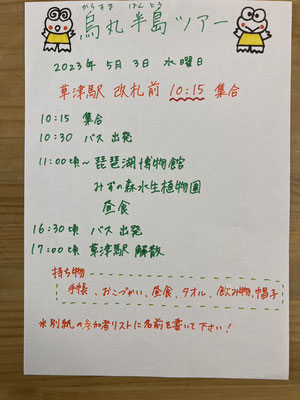 からすま はんとう
烏丸半島ツアー
2023年 5月 3日 水曜日
草津駅 改札前 10:15 集合
10:15 集合
10:30 バス 出発
11:00頃〜 琵琶湖博物館
みずの森水生植物園
昼食
16:30頃 バス 出発
17:00頃 草津駅 解散
持ち物
手帳、おこづかい、昼食、タオル、飲み物、帽子
※別紙の参加者リストに名前を書いて下さい!